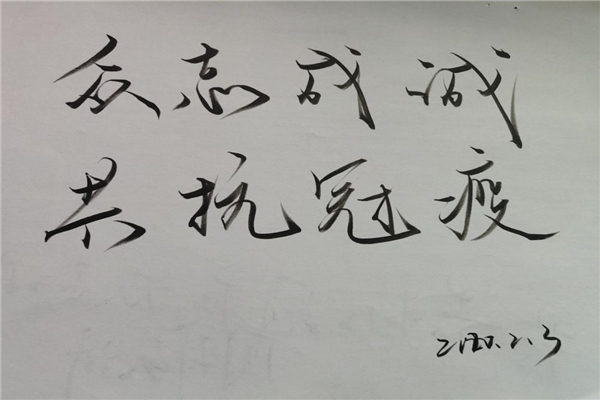 众志成诚
共抗冠疫
2020.2.3